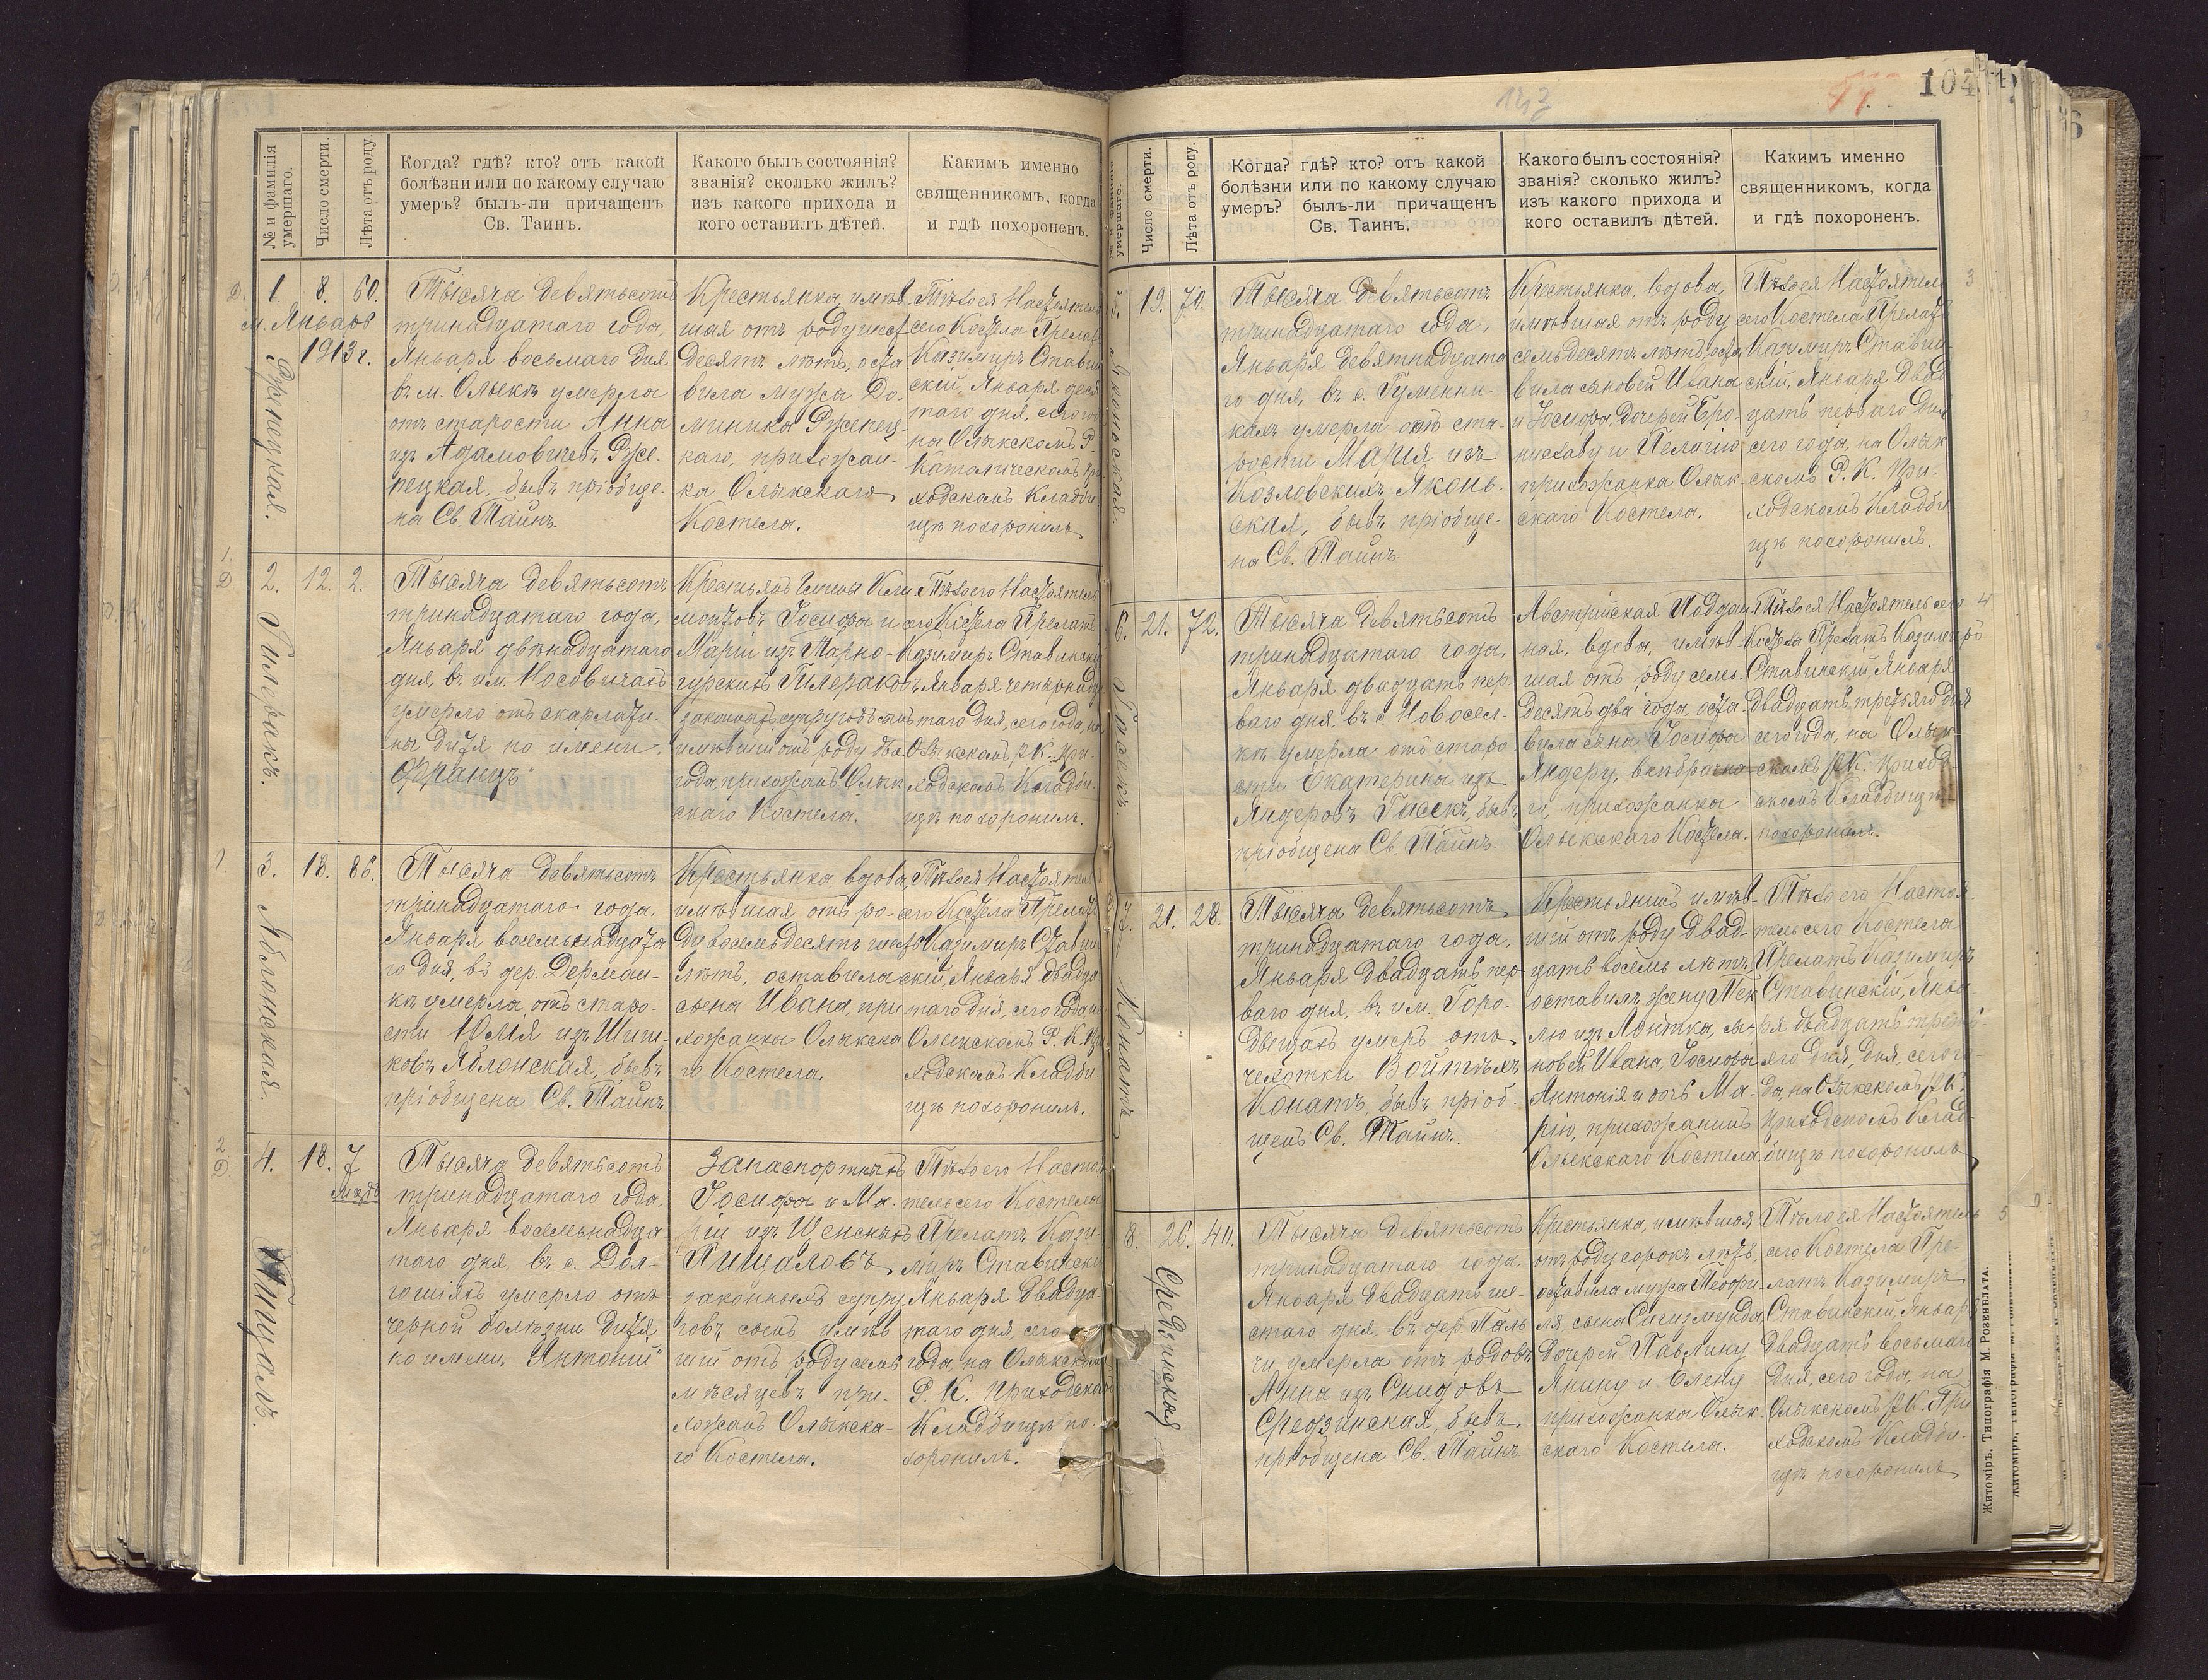 № и фамилія умершаго.
Число смерти.
Лѣта отъ роду.
Когда? гдѣ? кто? отъ какой
болѣзни или по какому случаю
умеръ? былъ-ли причащенъ
Св. Таинъ.
Какого былъ состоянія?
званія? сколько жилъ?
изъ какого прихода и
кого оставилъ дѣтей.
Какимъ именно
священникомъ, когда
и гдѣ похороненъ.
1.
м. Январь
1913 г.
Рженецкая.
8.
60.
Тысяча девятьсотъ
тринадцатаго года,
Января восьмаго дня
въ м. Олыкѣ умерла
отъ старости Анна
изъ Адамовичевъ Рже-
нецкая, бывъ пріобще-
на Св. Тайнъ.
Крестьянка, имѣв-
шая отъ роду шесть
десятъ лѣтъ, оста
вила мужа До-
миника Рженец-
каго, прихожан-
ка Олыкскаго
Костела.
Тѣло ея Настоятель
сего Костела Прелатъ
Казимиръ Ставин
скій, Января деся
таго дня, сего го
на Олыкскомъ Р.
Католическомъ при
ходскомъ Кладби
щѣ похоронилъ
2.
Гилеракъ.
12.
2.
Тысяча девятьсотъ
тринадцатаго года,
Января двѣнадцатаго
дня, въ им. Носовичахъ
умерло отъ скарлати-
ны дитя по имени
Францъ
Крестьянъ Гмины Кли
монтовъ Іосифа и
Маріи изъ Тарно-
гурскихъ Гилераковъ
законныхъ супруговъ сынъ
имѣвшій отъ роду два
года, прихожанъ Олык
скаго Костела.
Тѣло его Настоятель
сего Костела Прелатъ
Казимиръ Ставинскій
Января четырнадца
таго дня, сего года, на
Олыкскомъ Р. К. При-
ходскомъ Кладби-
щѣ похоронилъ.
3.
Яблонская.
18.
86.
Тысяча девятьсотъ
тринадцатаго года,
Января восемьнадцата
го дня, въ дер. Дерман-
кѣ умерла, отъ старо-
сти Юлія изъ Шиш-
ковъ Яблонская, бывъ
пріобщена Св. Тайнъ.
Крестьянка, вдова,
имѣвшая отъ ро-
ду восемьдесятъ шесть
лѣтъ, оставила
сына Ивана, при
хожанка Олыкска
го Костела.
Тѣло ея Настоятель
сего Костела Прелатъ
Казимиръ Ставин
скій, Января двадца
таго дня, сего года на
Олыкскомъ Р. К. Пр
ходскомъ Кладби
щѣ похоронилъ.
4.
Пищалъ.
18.
7
мѣсяцъ
Тысяча девятьсотъ
тринадцатаго года,
Января восемьнадца-
таго дня, въ с. Дол-
гошіяхъ умерло отъ
черной болѣзни дитя,
по имени „Антоній"
Запаспортныхъ
Іосифа и Ма
ріи изъ Щенсныхъ
Пищаловъ,
законныхъ супру
говъ сынъ имѣв
шій отъ роду семь
мѣсяцевъ при-
хожанъ Олыкска-
го Костела.
Тѣло его Настоя
тель сего Костела
Прелатъ Кази-
миръ Ставинскій
Января двадца-
таго дня, сего
года, на Олыкскомъ
Р. К. Приходскомъ
Кладбищѣ по-
хоронилъ.
143
104
умершаго.
Число смерти.
Лѣта отъ роду.
Когда? гдѣ? кто? отъ какой
болѣзни или по какому случаю
умеръ? былъ-ли причащенъ
Св. Таинъ.
Какого былъ состоянія?
званія? сколько жилъ?
изъ какого прихода и
кого оставилъ дѣтей.
Какимъ именно
священникомъ, когда
и гдѣ похороненъ.
5.
Яконьская.
19.
70.
Тысяча девятьсотъ
тринадцатаго года,
Января девятнадцата
го дня, въ с. Гуменни-
кахъ умерла отъ ста-
рости Марія изъ
Козловскихъ Яконь-
ская, бывъ пріобще-
на Св. Тайнъ.
Крестьянка, вдова,
имѣвшая отъ роду
семьдесятъ лѣтъ, оста
вила сыновей Ивана
и Іосифа, дочерей Бро-
ниславу и Пелагію
прихожанка Олык
скаго Костела.
Тѣло ея Настоятель
сего Костела Прелатъ
Казимиръ Ставин
скій, Января двад
цать перваго дня
сего года, на Олык
скомъ Р. К. При-
ходскомъ Кладби
щѣ похоронилъ.
3
6.
Гассекъ.
21.
72.
Тысяча девятьсотъ
тринадцатаго года,
Января двадцать пер-
ваго дня, въ с. Новосел-
кѣ умерла отъ старо
сти Екатерина изъ
Яндеровъ Гассекъ, бывъ
пріобщена Св. Тайнъ.
Австрійская Поддан-
ная, вдова, имѣв-
шая отъ роду семь-
десятъ два года, оста-
вила сына Іосифа
Яндеру, внѣбрачна
го, прихожанка
Олыкскаго Костела.
Тѣло ея Настоятель сего
Костела Прелатъ Казимиръ
Ставинскій, Января
двадцать третьяго дня
сего года, на Олык-
скомъ Р. К. Приход
скомъ Кладбищѣ
похоронилъ.
4
7.
Конатъ
21.
28.
Тысяча девятьсотъ
тринадцатаго года,
Января двадцать пер-
ваго дня, въ им. Горо-
дыщахъ умеръ отъ
чехотки Войтѣхъ
Конатъ, бывъ пріоб-
щенъ Св. Тайнъ.
Крестьянинъ имѣв-
шій отъ роду двад-
цать восемь лѣтъ,
оставилъ жену Тек
лю изъ Лонтка, сы-
новей Ивана, Іосифа
Антонія и дочь Ма-
рію, прихожанинъ
Олыкскаго Костела.
Тѣло его Настоя-
тель сего Костела
Прелатъ Казимиръ
Ставинскій, Янва
ря двадцать треть-
яго дня, дня, сего го-
да, на Олыкскомъ Р. К.
Приходскомъ Клад-
бищѣ похоронилъ
8.
Средзинская
26.
40.
Тысяча девятьсотъ
тринадцатаго года,
Января двадцать ше-
стаго дня, въ дер. Паль
чи, умерла отъ родовъ
Анна изъ Снидовъ
Средзинская, бывъ
пріобщена Св. Тайнъ.
Крестьянка, имѣвшая
отъ роду сорокъ лѣтъ,
оставила мужа Теофи-
ля, сына Сигизмунда,
дочерей Павлину
Янину и Елену
прихожанка Олык-
скаго Костела.
Тѣло ея Настоятель
сего Костела Пре-
латъ Казимиръ
Ставинскій, Января
двадцать восьмаго
дня, сего года, на
Олыкскомъ Р. К. При
ходскомъ Кладби-
щѣ похоронилъ
5
Житоміръ, Типографія М. Розенблата.